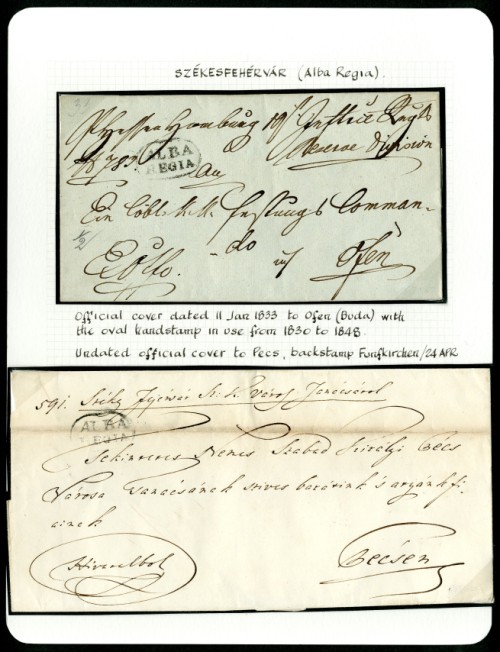 SZÉKESFEHÉRVÁR (Alba Regia).
Hessen Homburg 19t Infterie Regts
No 783 ALBA REGIA Reserve Division
An
Ein löbl. k.k. Festungs Comman-
do
Exoffo. in Ofen
Official cover dated 11 Jan 1833 to Ofen (Buda) with
the oval handstamp in use from 1830 to 1848.
Undated official cover to Pecs, backstamp Funfkirchen/24 APR
591. Székes Fejérvár Sz. K. Város Tanácsától
ALBA
REGIA
Tekintetes Nemes Szabad Királyi Pécs
Városa Tanácsának szives barátink s atyánkfi-
ainak
Hivatalbol Pécsen